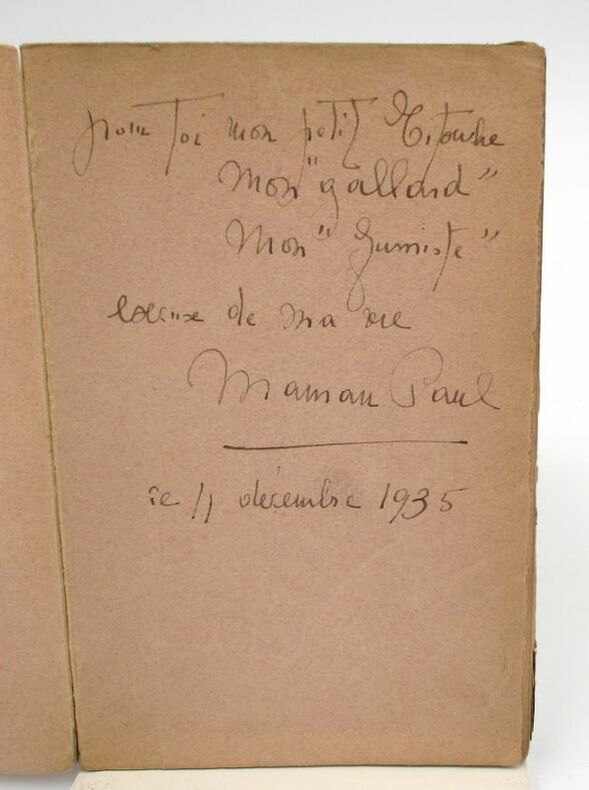 pour Toi mon petit Titouche
Mon "gallard"
Mon "fumiste"
de ma vie
Maman Paul
ce 11 décembre 1935